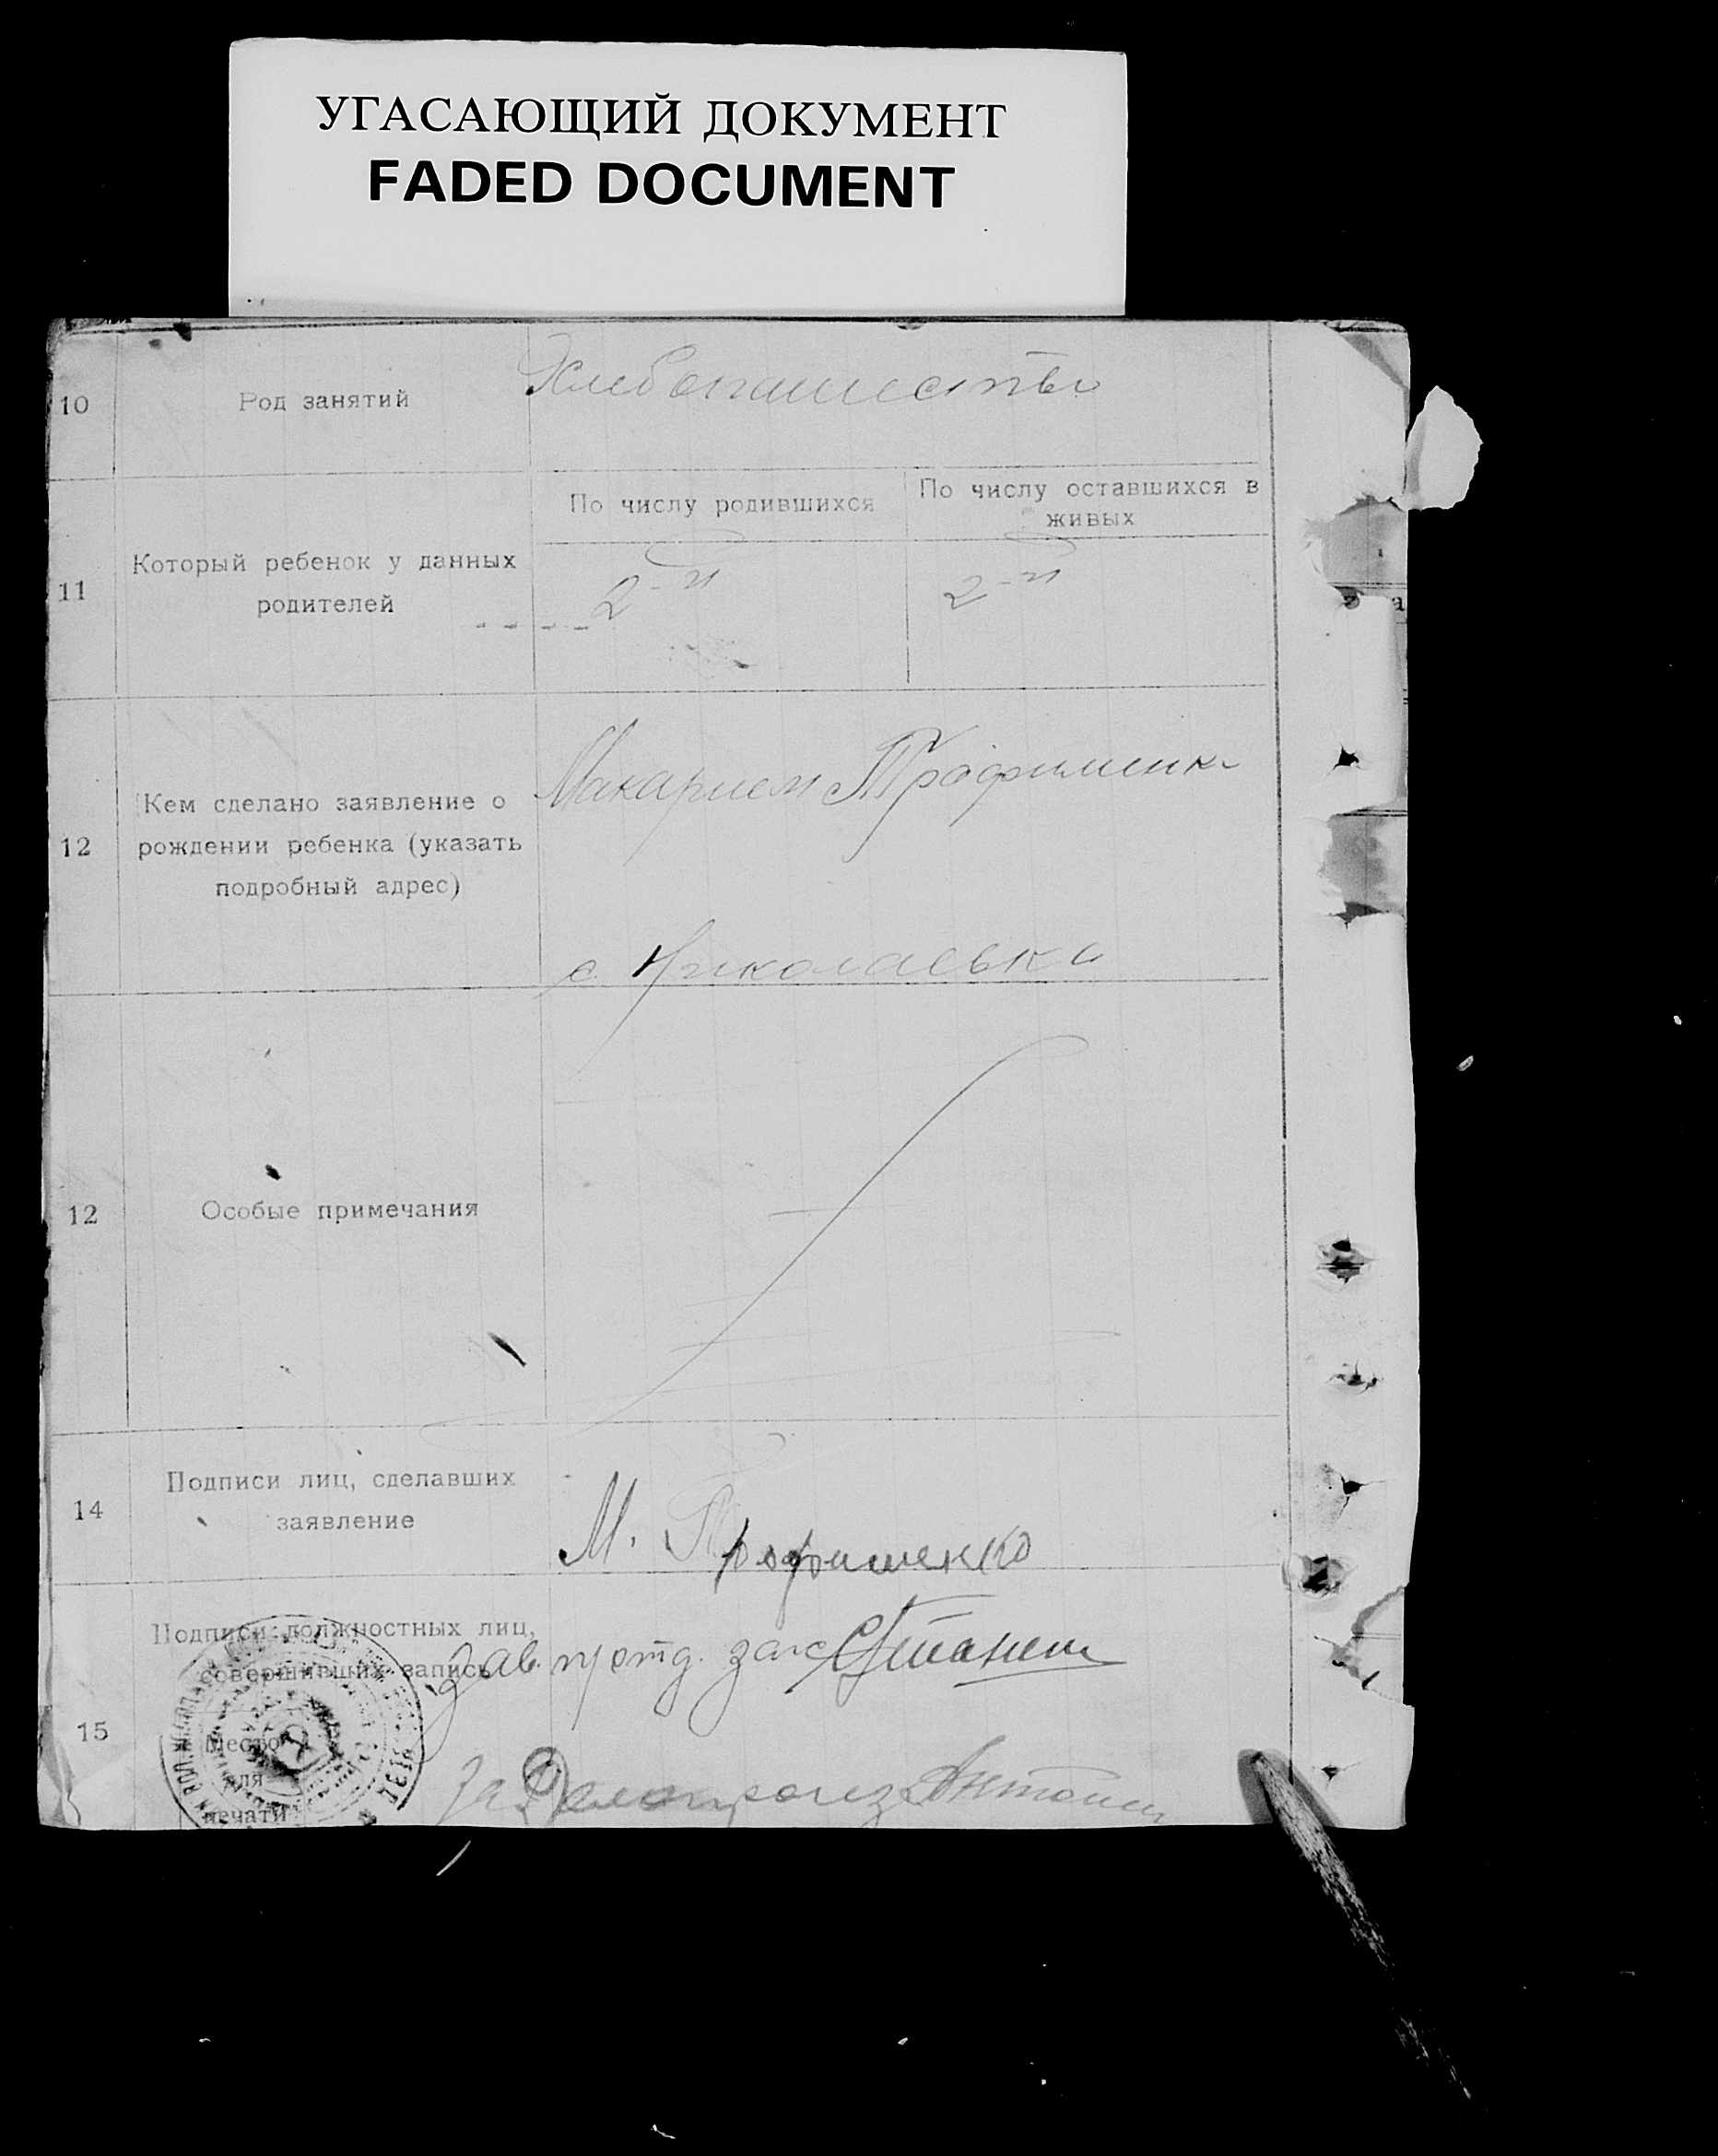 УГАСАЮЩИЙ ДОКУМЕНТ
FADED DOCUMENT
10
Род занятий
Хлебопашество
По числу родившихся
По числу оставшихся в
живых
11
Который ребенок у данных
родителей
2-й
2-й
12
Кем сделано заявление о
рождении ребенка (указать
подробный адрес)
Макарием Трофименко
с. Николаевка
12
Особые примечания
14
Подписи лиц, сделавших
заявление
М. Трофименко
15
Подписи должностных лиц,
совершивших запись
Зав. п/отд. загс
Место
для
печати
За Делопроиз